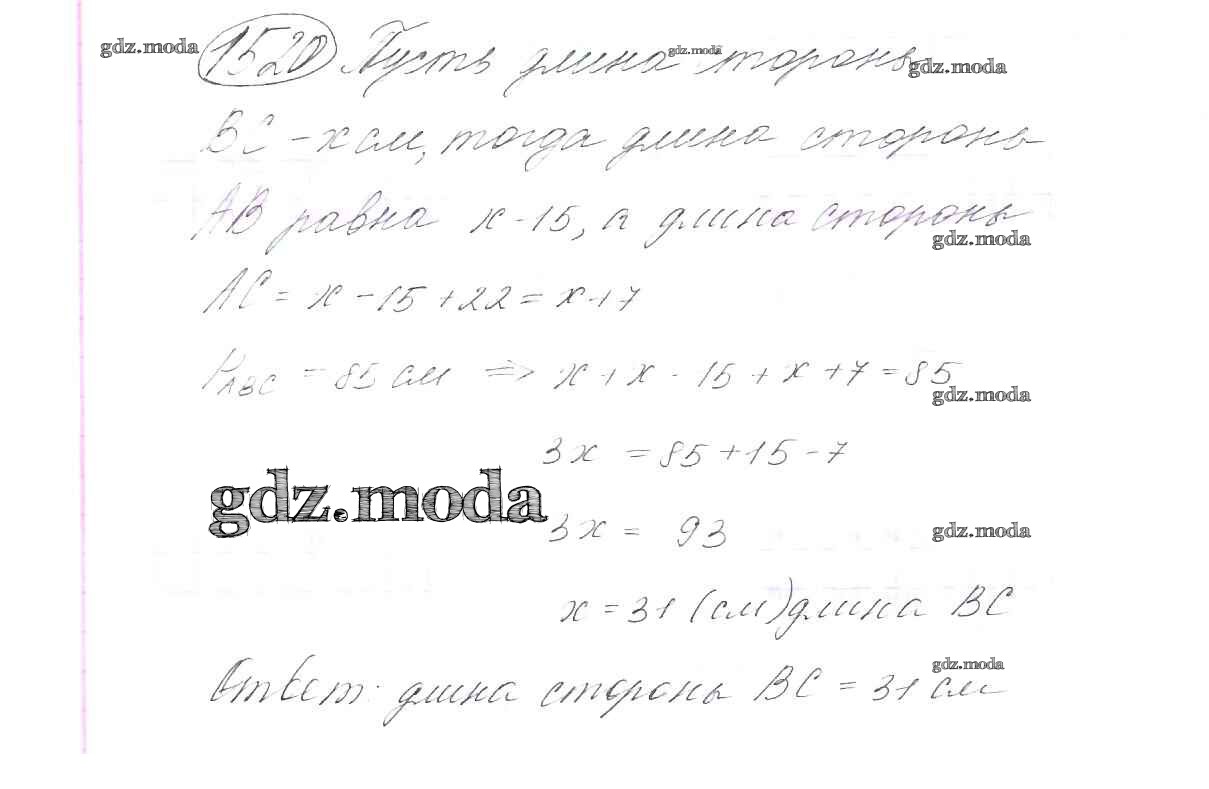 gdz.moda 1520 Пусть длина стороны gdz.moda gdz.moda
BC - x см, тогда длина стороны
AB равна x - 15, а длина стороны
gdz.moda
AC = x - 15 + 22 = x + 7
P ABC = 85 см => x + x - 15 + x + 7 = 85
gdz.moda
3x = 85 + 15 - 7
gdz.moda
3x = 93 gdz.moda
x = 31 (см) длина BC
gdz.moda
Ответ: длина стороны BC = 31 см